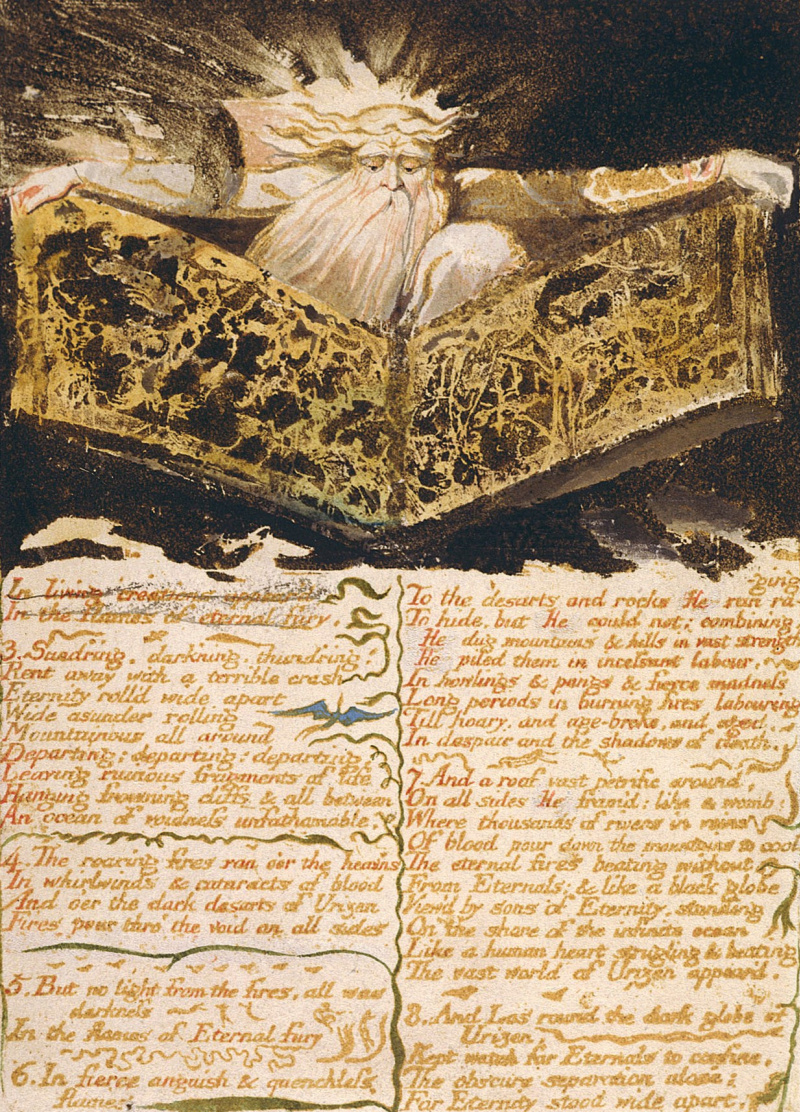 In living creations appear'd
In the flames of eternal fury.
3. Sundring, darkning, thundring!
Rent away with a terrible crash
Eternity roll'd wide apart
Wide asunder rolling
Mountainous all around
Departing; departing; departing:
Leaving ruinous fragments of life
Hanging frowning cliffs & all between
An ocean of voidness unfathomable
4. The roaring fires ran oer the heavens
In whirlwinds & cataracts of blood
And oer the dark desarts of Urizen
Fires pour thro' the void on all sides
5. But no light from the fires, all was
darkness
In the flames of Eternal fury
6. In fierce anguish & quenchless
flames
ging
To the desarts and rocks He ran ra
To hide, but He could not; combining
He dug mountains & hills in vast strength
He piled them in incessant labour,
In howlings & pangs & fierce madness
Long periods in burning fires labouring
Till hoary, and age-broke, and aged,
In despair and the shadows of death.
7. And a roof vast petrific around,
On all sides He fram'd: like a womb;
Where thousands of rivers in veins
Of blood pour down the mountains to cool
The eternal fires beating without
From Eternals; & like a black globe
View'd by sons of Eternity, standing
On the shore of the infinite ocean
Like a human heart strugling & beating
The vast world of Urizen appear'd.
8. And Los round the dark globe of
Urizen,
Kept watch for Eternals to confine,
The obscure separation alone;
For Eternity stood wide apart,